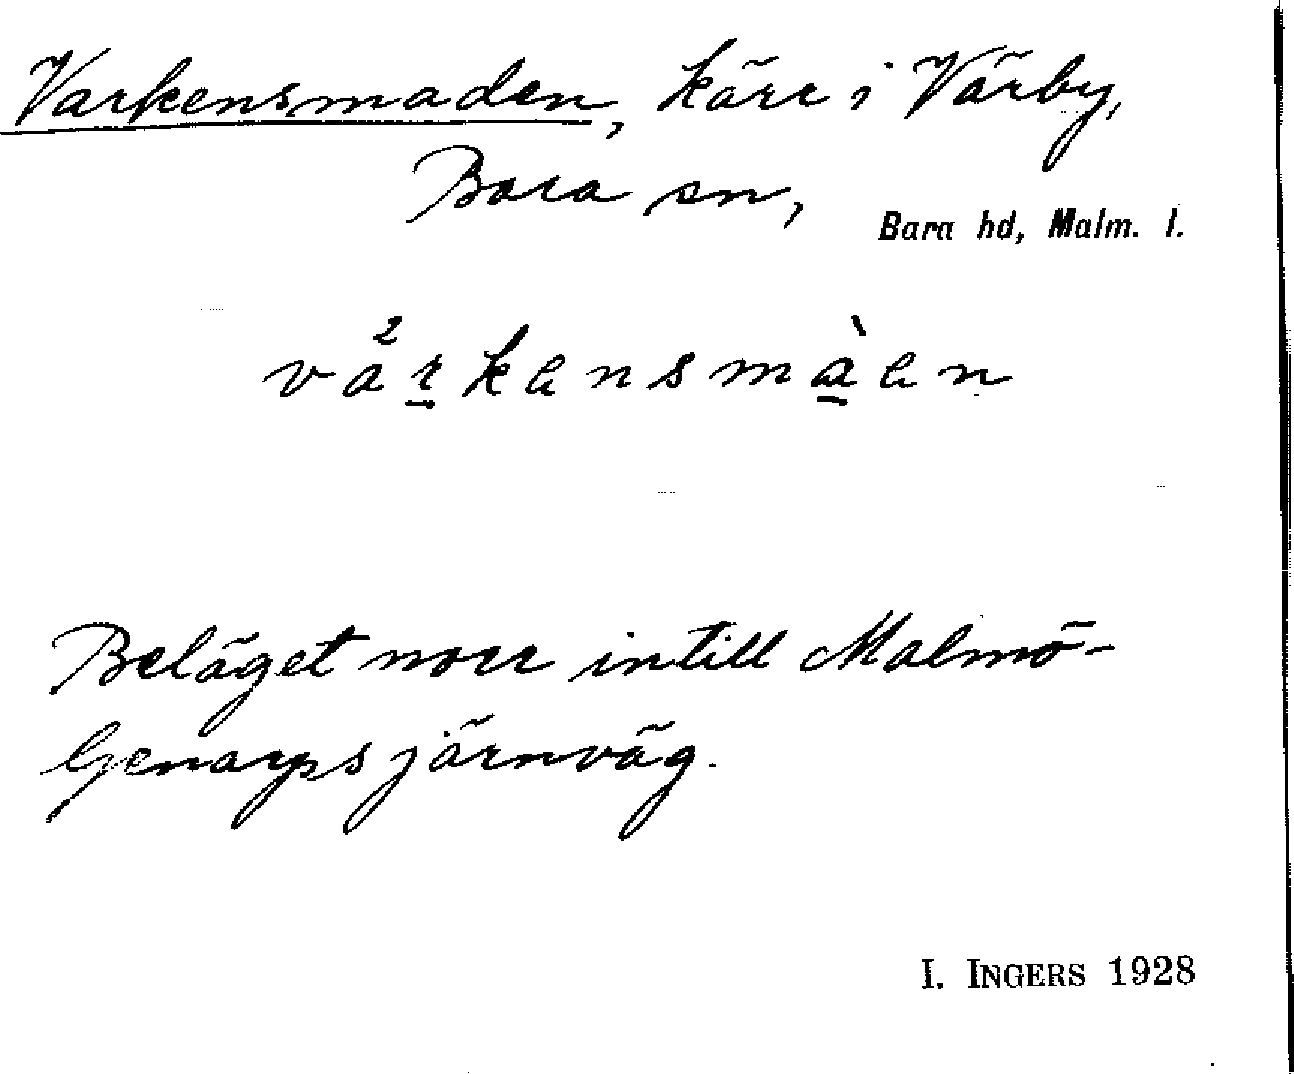 Varkensmaden, kärr i Värby,
Bara sn,
Bara hd, Malm. l.
vårkensmàen
Beläget norr intill Malmö-
Genarps järnväg.
I. INGERS 1928